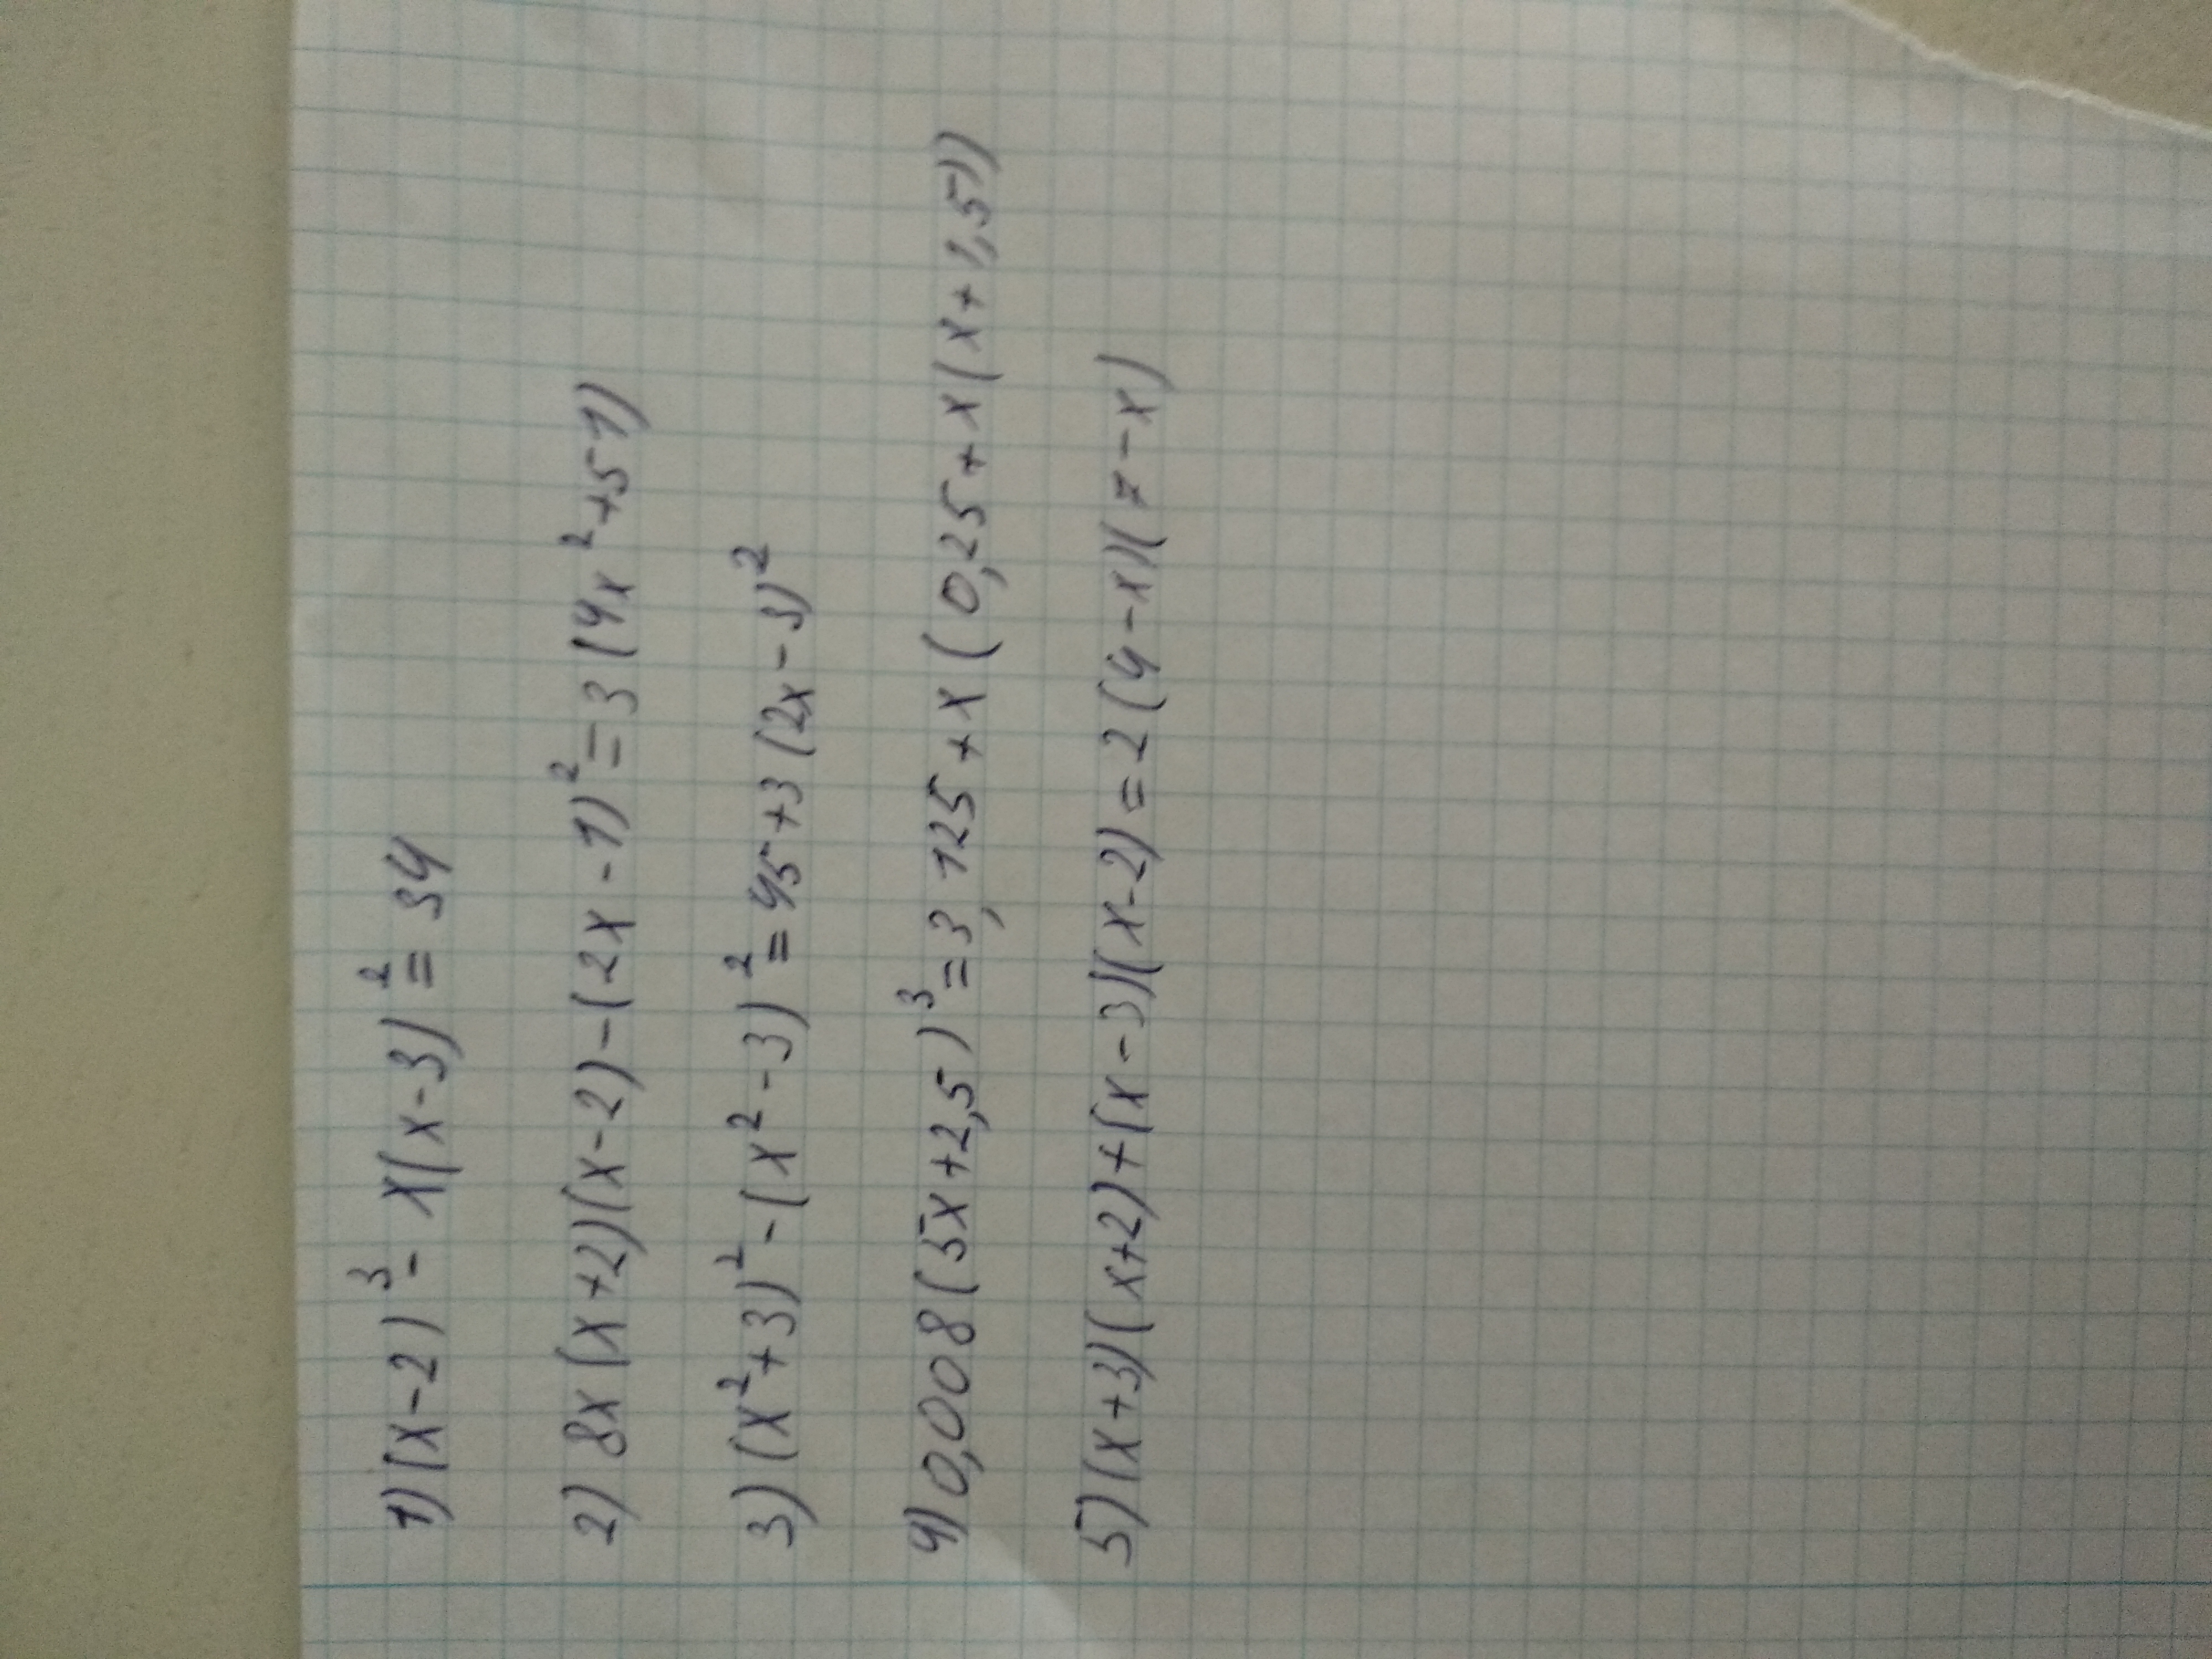 1) (x-2)³ - x(x-3)² = 34
2) 8x(x+2)(x-2)-(2x-1)² = 3(4x²+51)
3) (x²+3)² - (x²-3)² = 45+3(2x-3)²
4) 0,008(5x+2,5)³ = 3,125+x(0,25+x(x+1,5))
5) (x+3)(x+2)+(x-3)(x-2)=2(4-x)(7-x)